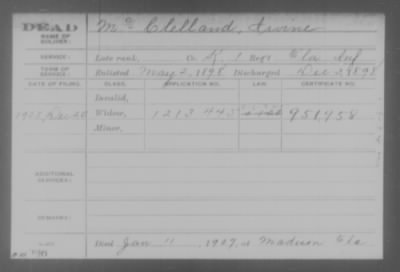 DEAD
NAME OF SOLDIER:
Mc Clelland, Irvine
SERVICE:
Late rank, Co K, 1 Reg't Fla Inf
TERM OF SERVICE:
Enlisted May 2, 1898 Discharged Dec 1898
DATE OF FILING. CLASS. APPLICATION NO. LAW. CERTIFICATE NO.
Invalid,
Widow, 1213445 951958
Minor,
ADDITIONAL SERVICES:
REMARKS:
Died Jan 11, 1909, at Madison Fla